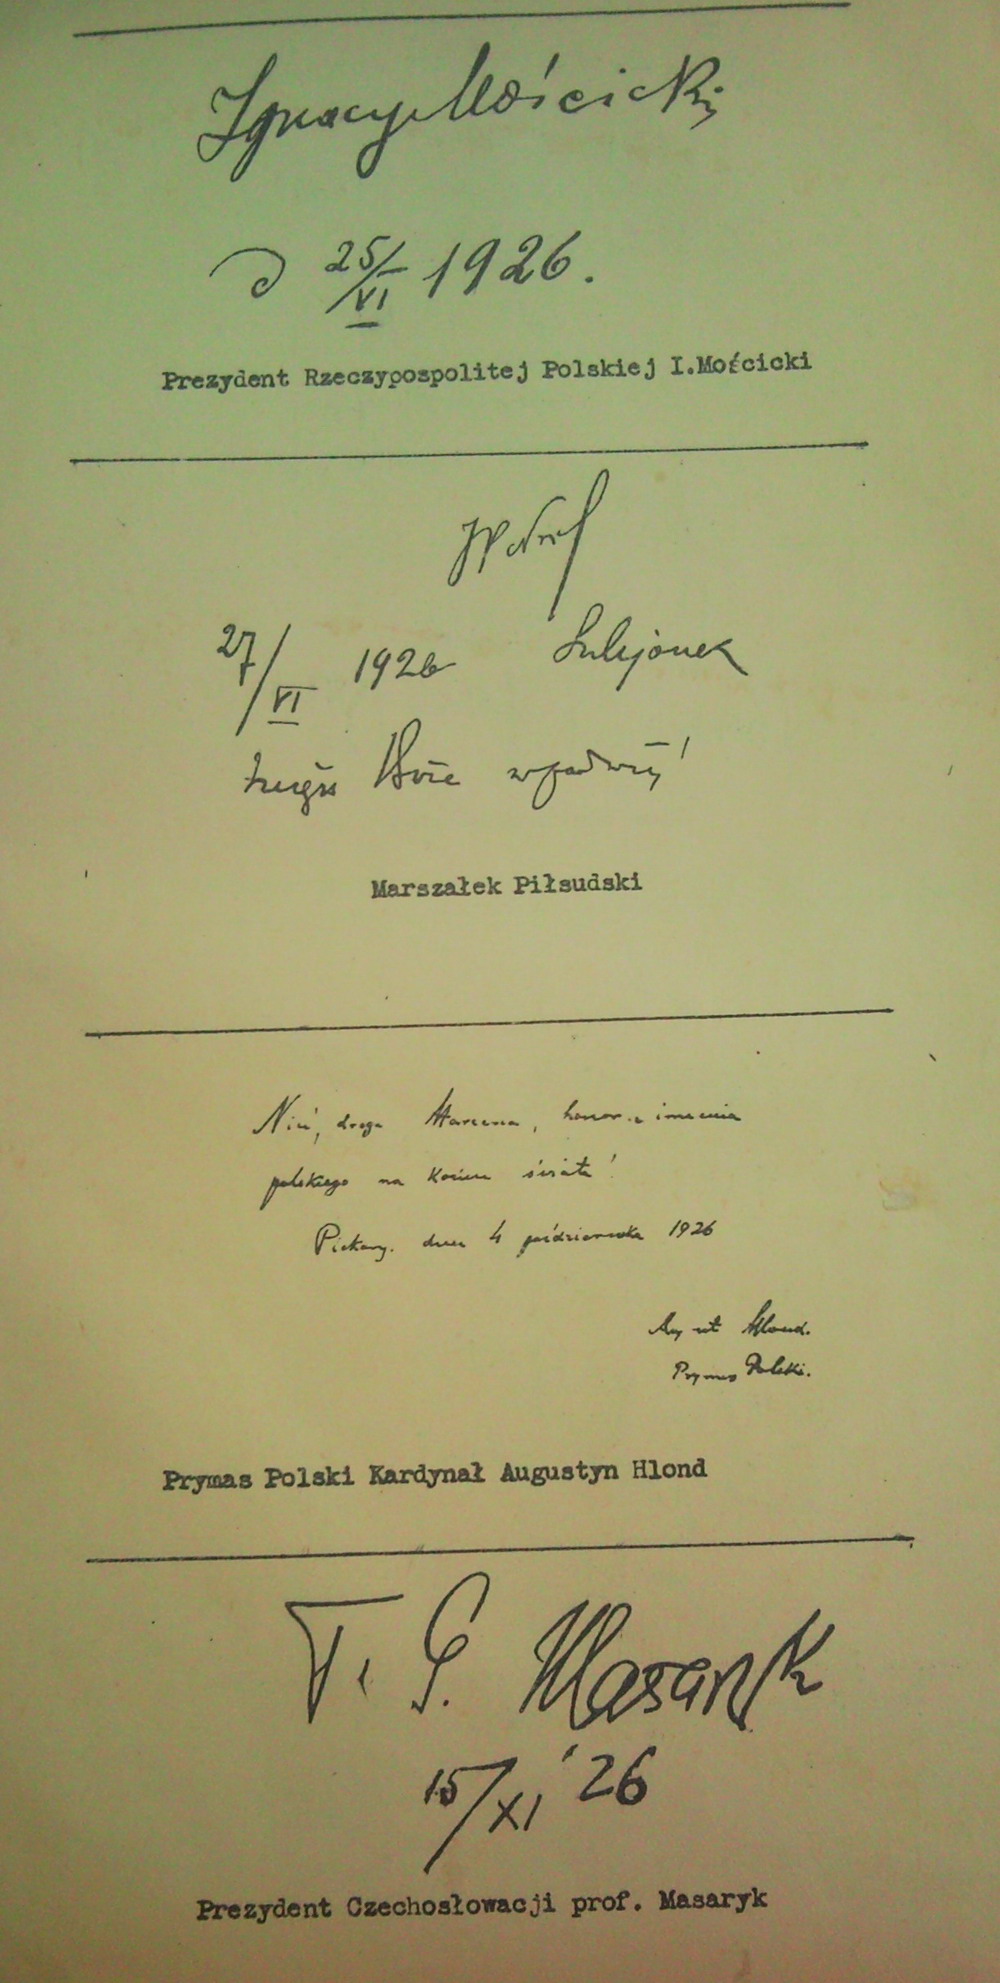 Ignacy Mościcki
d 25/VI 1926.
Prezydent Rzeczypospolitej Polskiej I.Mościcki
27/VI 1926 Sulejówek
Szczęść Boże w podróży!
Marszałek Piłsudski
Nieś, droga Marzena, honor imienia
polskiego na koniec świata!
Piekary. dnia 4 października 1926
August Hlond.
Prymas Polski.
Prymas Polski Kardynał Augustyn Hlond
T. G. Masaryk
15/XI '26
Prezydent Czechosłowacji prof. Masaryk